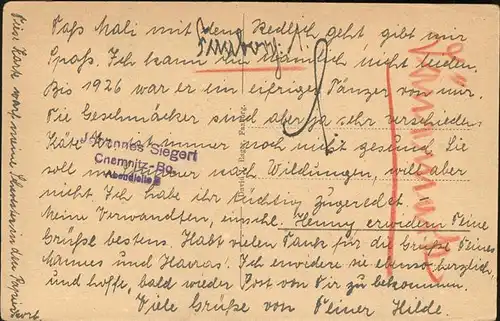 Daß Mali mit dem Redlich geht gibt mir
Spaß. Ich kann ihn nämlich nicht leiden.
Bis 1926 war er ein eifriger Tänzer von mir.
Die Geschmäcker sind aber ja sehr verschieden.
Käte ist immer noch nicht gesund. Sie
soll im Sommer nach Wildungen, will aber
nicht. Ich habe ihr tüchtig zugeredet.
Meine Verwandten, einschl. Henny erwidern Deine
Grüße bestens. Habt vielen Dank für die Grüße Deines
Mannes und Ich erwidere sie ebenso herzlich
und hoffe, bald wieder Post von Dir zu bekommen.
Viele Grüße von Deiner Hilde.
Johannes Siegert
Chemnitz-
Deine Karte warf meine Schwester in den